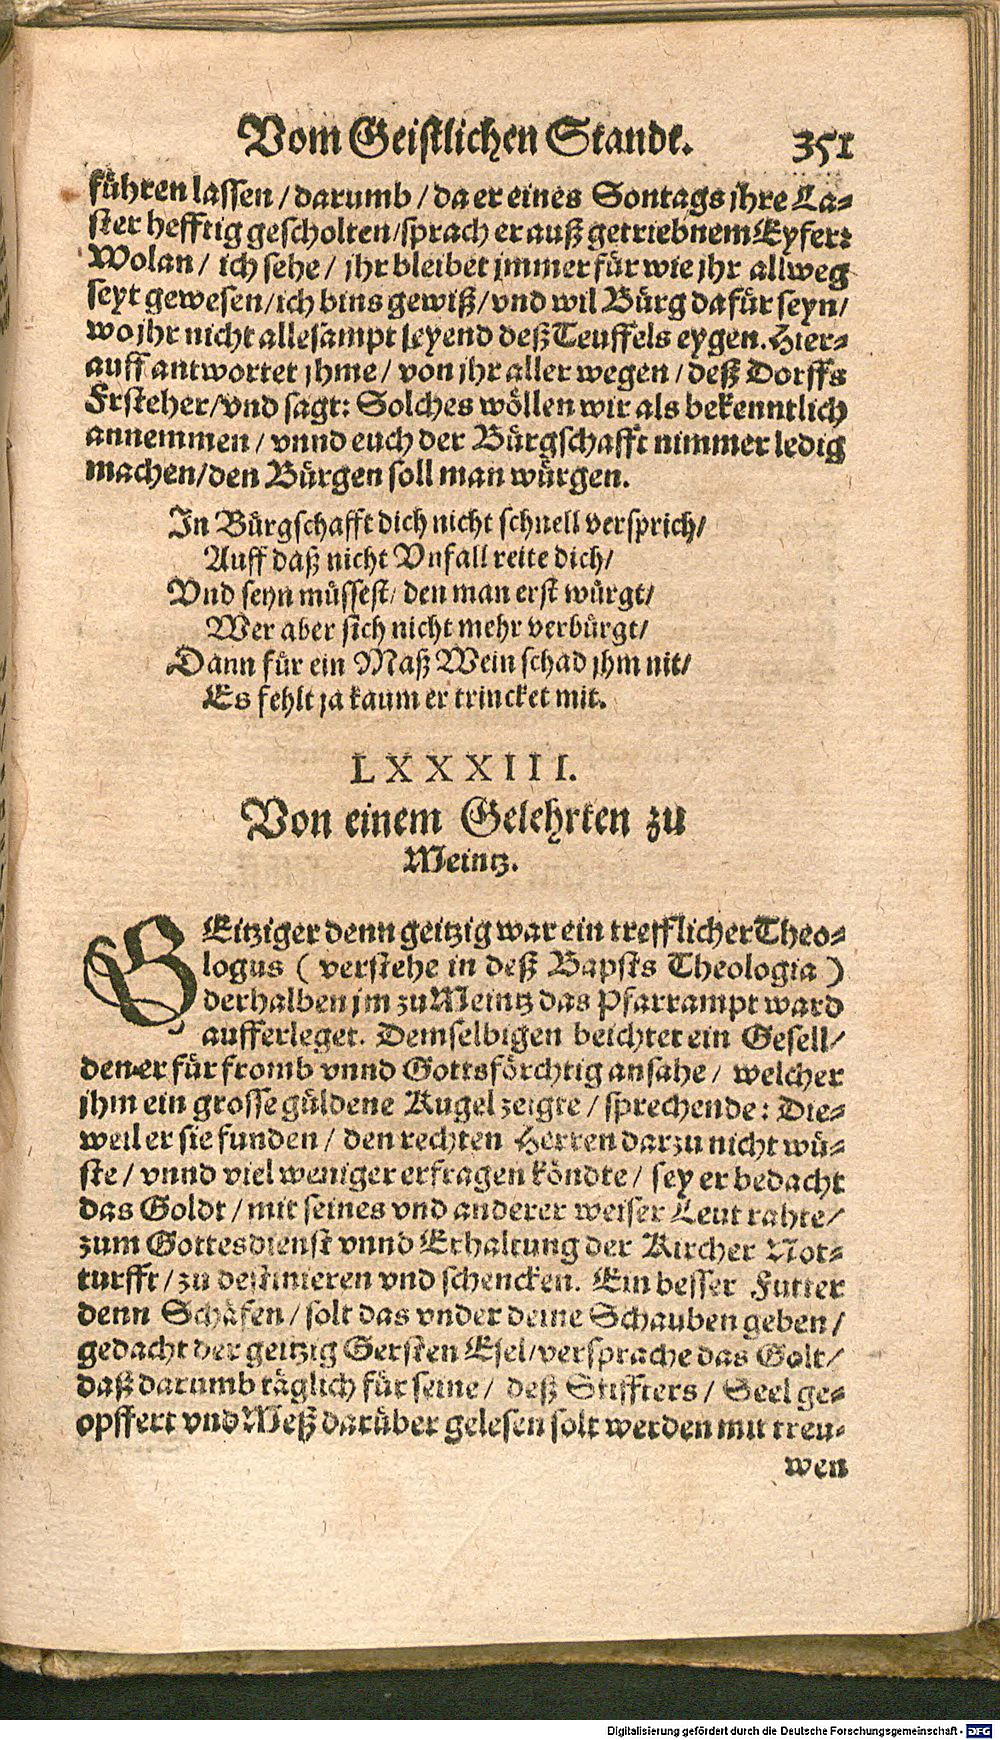 Vom Geistlichen Stande. 351
führen lassen / darumb / da er eines Sontags jhre La-
ster hefftig gescholten / sprach er auß getriebnem Eyfer:
Wolan / ich sehe / jhr bleibet jmmer für wie jhr allweg
seyt gewesen / ich bins gewiß / vnd wil Bürg dafür seyn /
wo jhr nicht allesampt seyend deß Teuffels eygen. Hier-
auff antwortet jhme / von jhr aller wegen / deß Dorffs
Frsteher / vnd sagt: Solches wöllen wir als bekenntlich
annemmen / vnnd euch der Bürgschafft nimmer ledig
machen / den Bürgen soll man würgen.
In Bürgschafft dich nicht schnell versprich /
Auff daß nicht Vnfall reite dich /
Vnd seyn müssest / den man erst würgt /
Wer aber sich nicht mehr verbürgt /
Dann für ein Maß Wein schad jhm nit /
Es fehlt ja kaum er trincket mit.
LXXXIII.
Von einem Gelehrten zu
Meintz.
GEitziger denn geitzig war ein trefflicher Theo-
logus ( verstehe in deß Bapsts Theologia )
derhalben jm zu Meintz das Pfarrampt ward
aufferleget. Demselbigen beichtet ein Gesell /
den er für fromb vnnd Gottsförchtig ansahe / welcher
jhm ein grosse güldene Kugel zeigte / sprechende: Die-
weil er sie funden / den rechten Herren darzu nicht wü-
ste / vnnd viel weniger erfragen köndte / sey er bedacht
das Goldt / mit seines vnd anderer weiser Leut rahte /
zum Gottesdienst vnnd Erhaltung der Kircher Not-
turfft / zu destinieren vnd schencken. Ein besser Futter
denn Schäfen / solt das vnder deine Schauben geben /
gedacht der geitzig Gersten Esel / versprache das Golt /
daß darumb täglich für seine / deß Stiffters / Seel ge-
opffert vnd Meß darüber gelesen solt werden mit treu-
wen
Digitalisierung gefördert durch die Deutsche Forschungsgemeinschaft - DFG